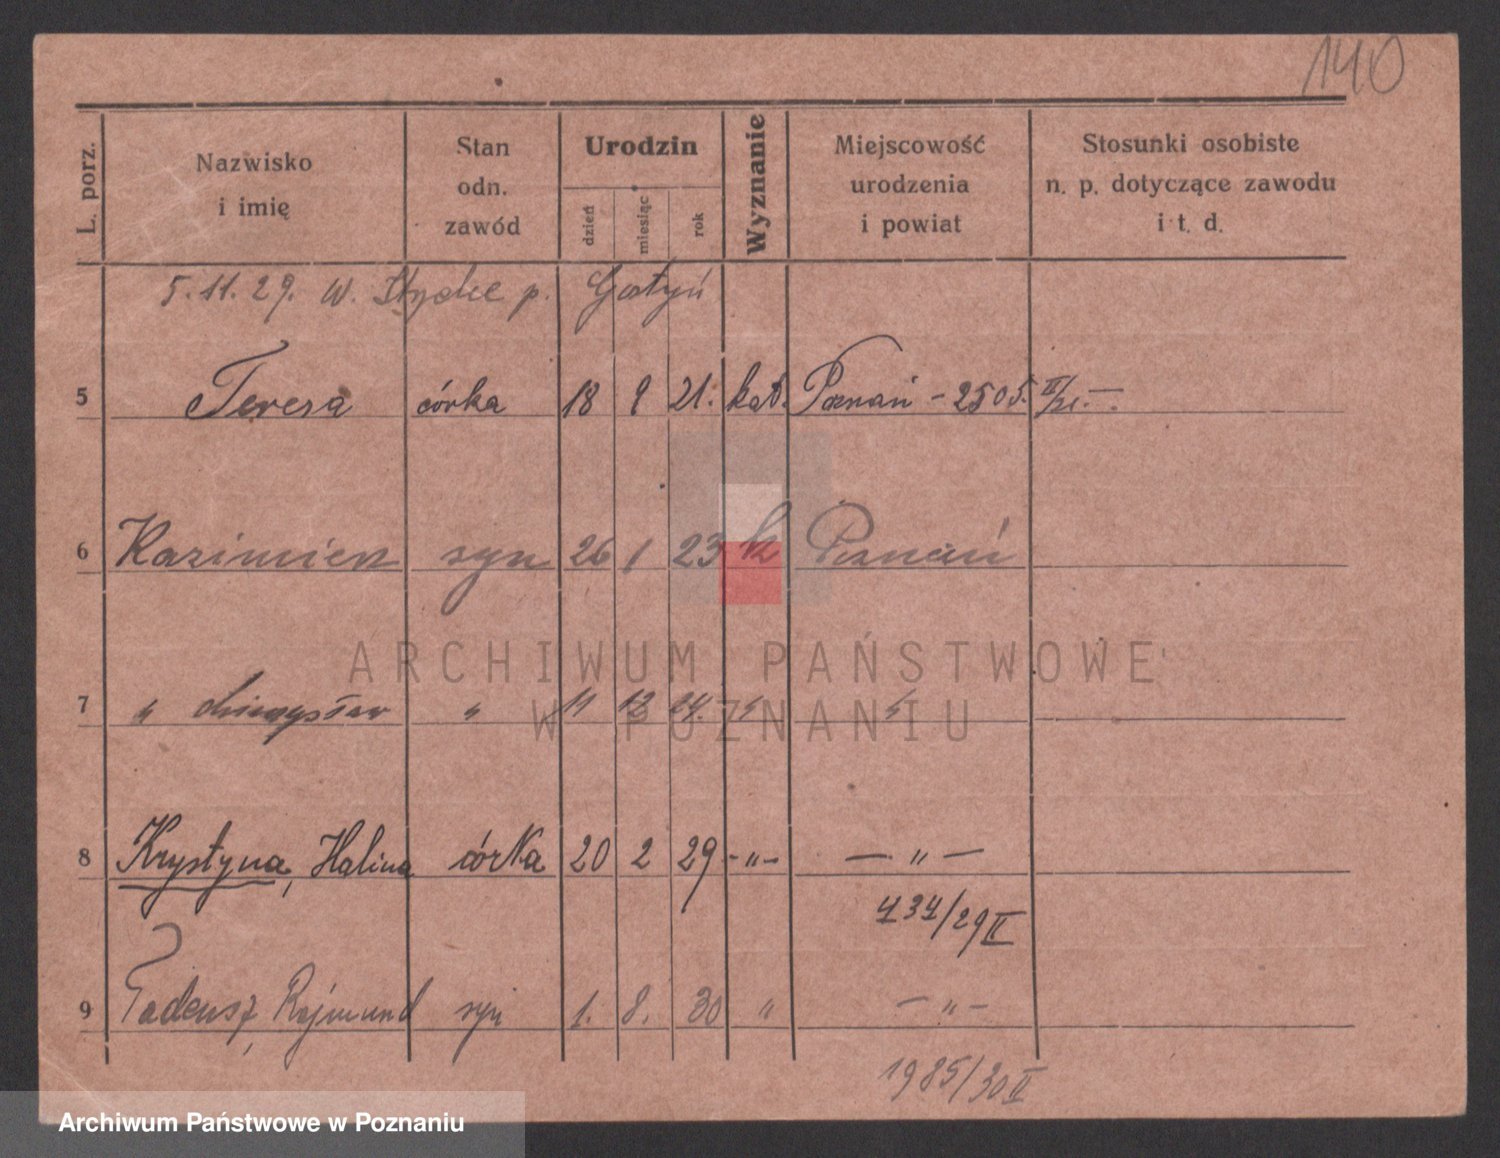 140
L. porz.
Nazwisko
i imię
Stan
odn.
zawód
Urodzin
dzień
miesiąc
rok
Wyznanie
Miejscowość
urodzenia
i powiat
Stosunki osobiste
n. p. dotyczące zawodu
i t. d.
5.11.29. w. p. Gostyń
5 Teresa córka 18 9 21. kat. Poznań - 2505 II/21. -
6 Kazimierz syn 26 1 23 k Poznań
7 " " 11 12 24. " "
8 Krystyna, Halina córka 20 2 29 -"- - " -
434/29 II
9 Tadeusz, Rajmund syn 1. 8. 30 " - " -
1985/30 II
ARCHIWUM PAŃSTWOWE
W POZNANIU
Archiwum Państwowe w Poznaniu